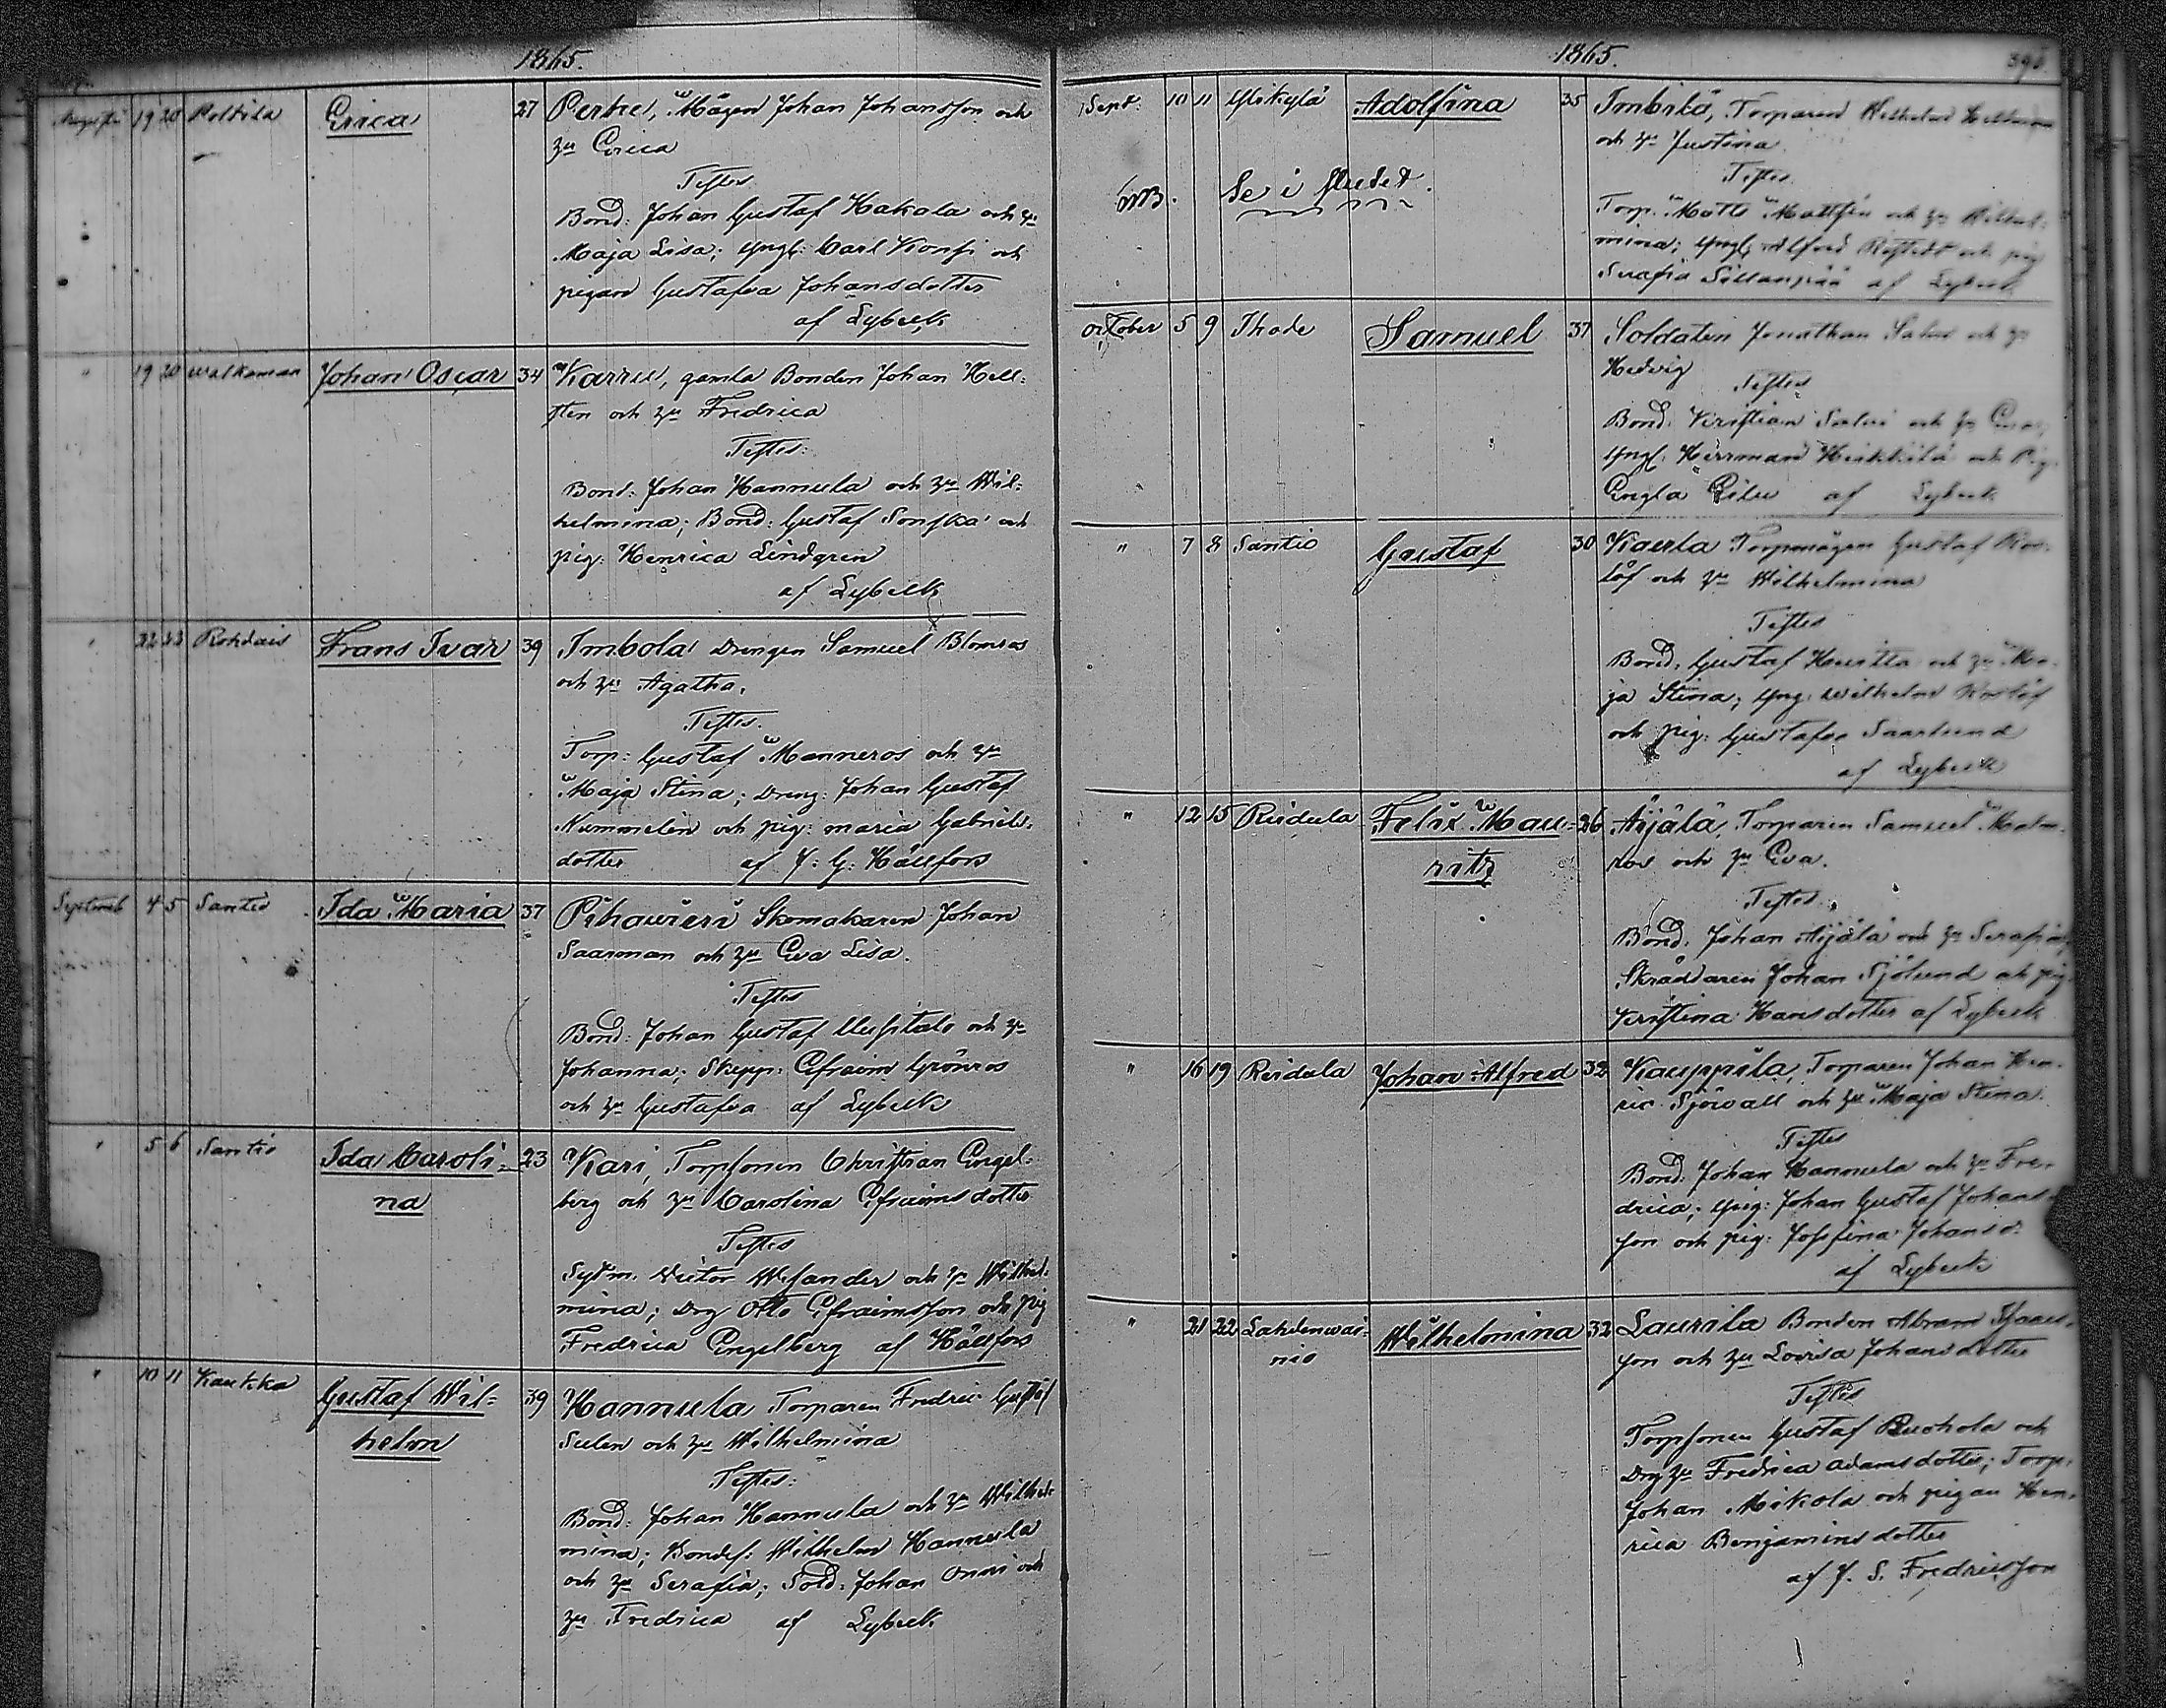 1865.
Augusti 19 20 Poltila Erica 27 Perhe, Mågen Johan Johansson och
hu Erica
Testes
Bond: Johan Gustaf Hakala och hu
Maja Lisa; Yngl: Carl Konsi och
pigan Gustafva Johansdotter
af Lybeck
" 19 20 Walkaman Johan Oscar 34 Karru, gamla Bonden Johan Hell-
sten och hu Fredrica
Testes:
Bond: Johan Hannula och hu Wil-
helmina; Bond: Gustaf Sonska och
pig: Henrica Lindgren
af Lybeck
" 22 23 Rohdais Frans Ivar 39 Imbola Drengen Samuel Blomros
och hu Agatha.
Testes.
Torp: Gustaf Manneros och hu
Maja Stina; Dreng: Johan Gustaf
Nummelin och pig: Maria Gabriels-
dotter af J: G: Hällfors
Septemb 4 5 Santio Ida Maria 37 Pihawieri Skomakaren Johan
Saarman och hu Eva Lisa.
Testes
Bond: Johan Gustaf Uusitalo och hu
Johanna; Skepp: Efraim Grönros
och hu Gustafva af Lybeck
" 5 6 Santio Ida Caroli- 23 Kari, Torpsonen Christian Engel-
na
berg och hu Carolina Efraimsdotter
Testes
Sytm. Victor Wefander och hu Wilhel-
mina; Drg Otto Efraimsson och pig
Fredrica Engelberg af Hällfors
" 10 11 Kaukka Gustaf Wil- 39 Hannula Torparen Fredric Gustaf
helm
Sulen och hu Wilhelmina
Testes:
Bond: Johan Hannula och hu Wilhel-
mina; Bondes: Wilhelm Hannula
och hu Serafia; Sold: Johan Onni och
hu Fredrica af Lybeck
1865.
Sept. 10 11 Ylikylä Adolfina 35 Imbilä, Torparen Wilhelm
och hu Justina
NB. Se i slutet.
Testes.
Torp. Matts Mattsin och hu Wilhel-
mina; Yngl. Alfred och pig
Serafia Sillanpää af Lybeck
October 5 9 Thode Samuel 37 Soldaten Jonathan Salus och hu
Hedvig
Testes
Bond. Kristian och hu Eva,
Yngl. Herrman Heikkilä och Pig.
Engla af Lybeck
" 7 8 Santio Gustaf 30 Kaerla Torpmågen Gustaf Ros-
löf och hu Wilhelmina
Testes
Bond. Gustaf Huitta och hu Ma-
ja Stina; Yng: Wilhelm Roslöf
och pig: Gustafva Saarlund
af Lybeck
" 12 15 Riidula Felix Mau- 26 Äijälä, Torparen Samuel Malm-
ritz
ros och hu Eva.
Testes
Bond. Johan Äijälä och hu Serafia;
Skräddaren Johan Sjölund och pig
Kristina Hansdotter af Lybeck
" 16 19 Riidula Johan Alfred 32 Kauppila, Torparen Johan Hen-
ric Sjöwall och hu Maja Stina.
Testes
Bond. Johan Hannula och hu Fre-
drica; Yng: Johan Gustaf Johans-
son och pig: Josefina Johansd:
af Lybeck
" 21 22 Lahdenwai- Wilhelmina 32 Laurila Bonden Abram Isaacs-
nio
son och hu Lovisa Johansdotter
Testes
Torpsonen Gustaf Ruohola och
Drg hu Fredrica Adamsdotter; Torp.
Johan Mikola och pigan Hen-
rica Benjaminsdotter
af J. S. Fredricsson